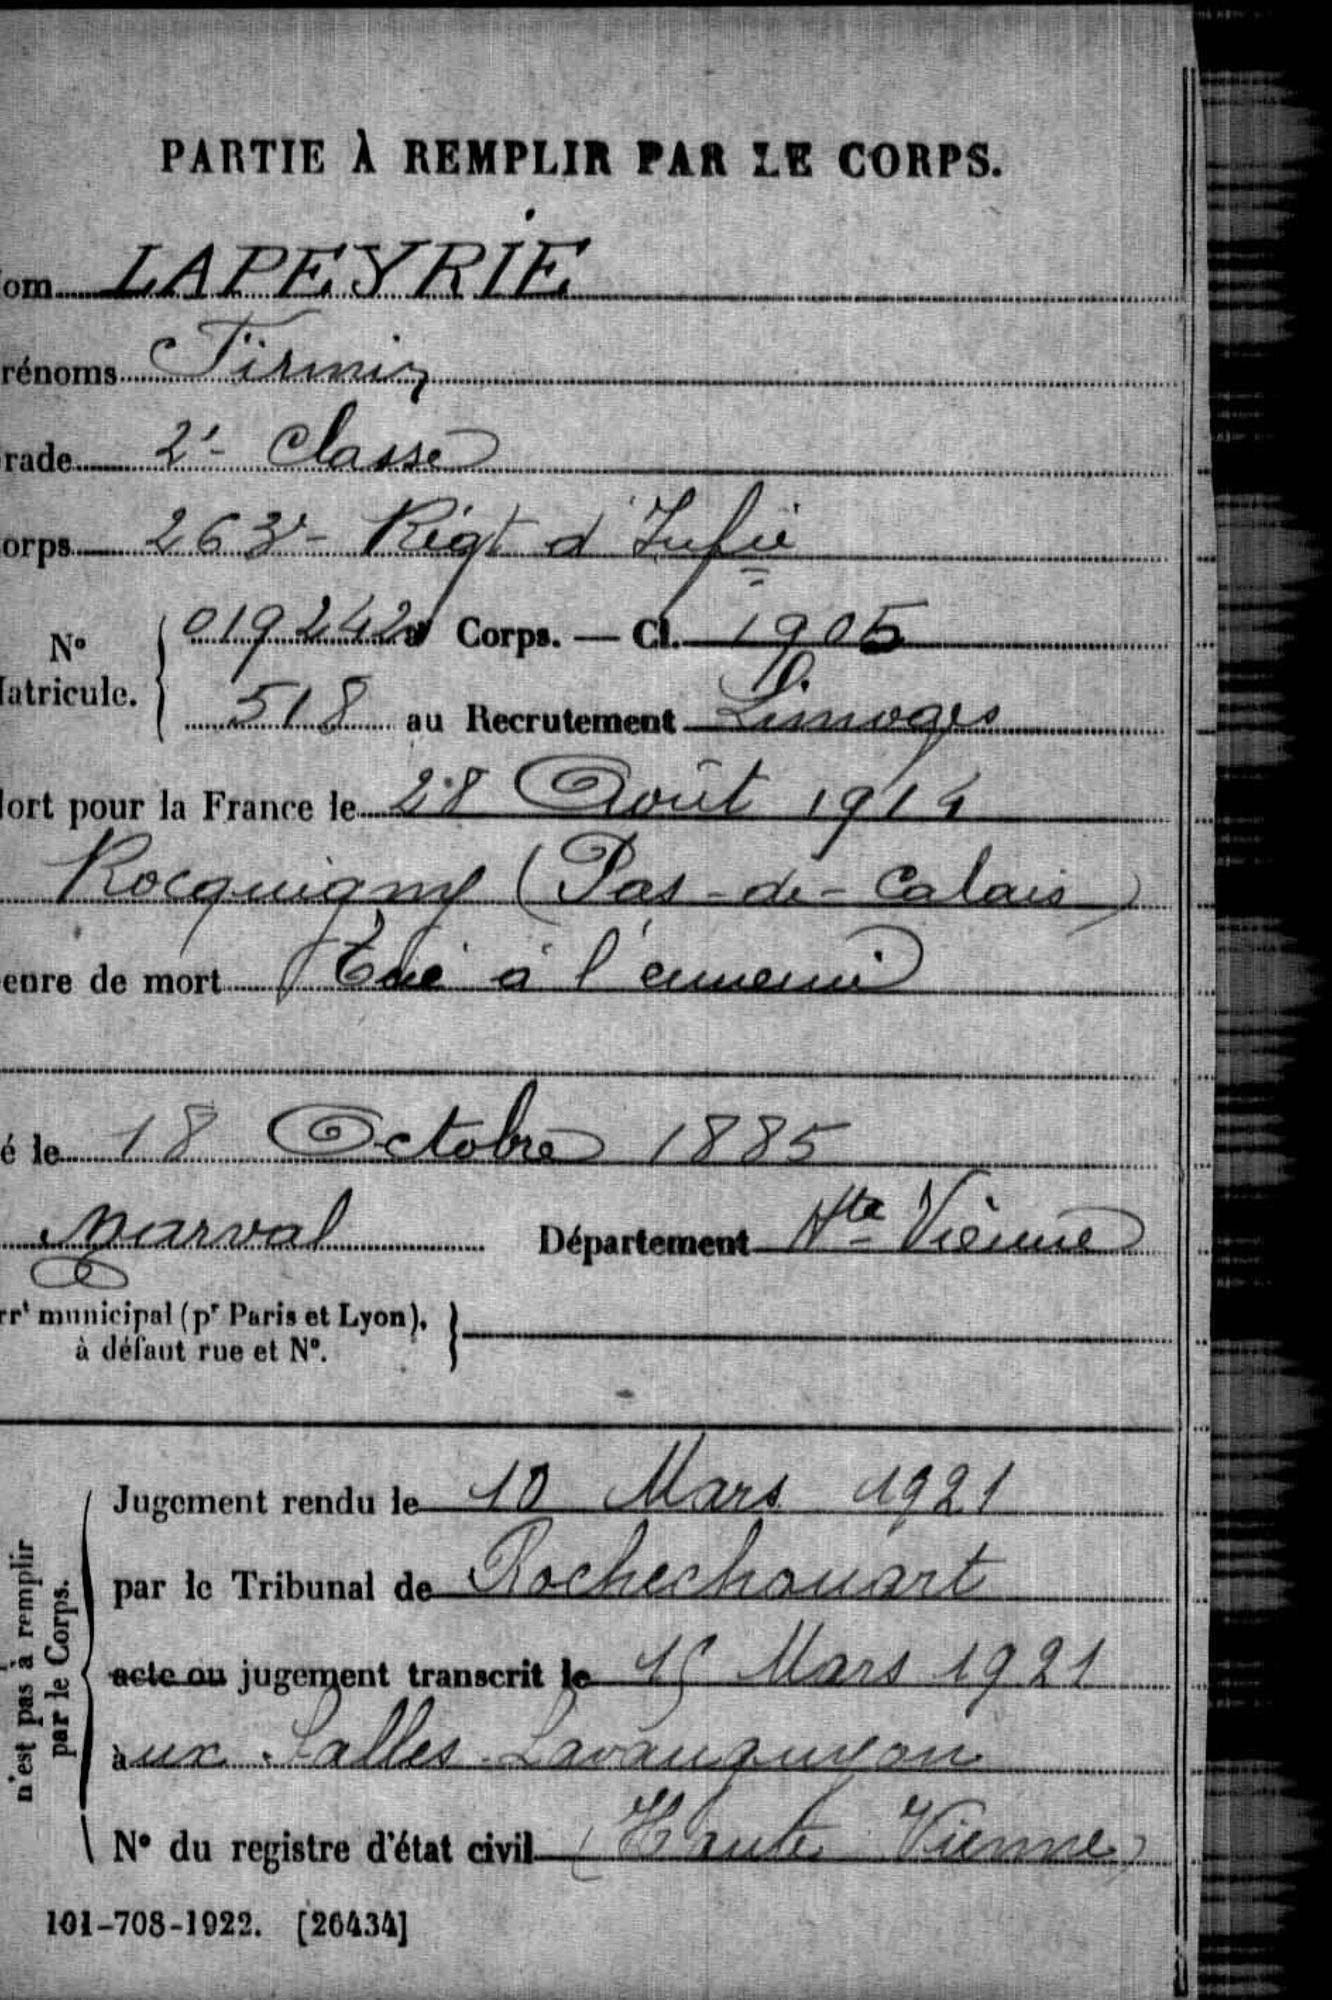 PARTIE À REMPLIR PAR LE CORPS.
om LAPEYRIE
rénoms Firmin
rade 2e Classe
orps 263e Régt d'Infie
N° 019242 au Corps. — Cl. 1905
latricule. 518 au Recrutement Limoges
lort pour la France le 28 Août 1914
Rocquigny (Pas-de-Calais)
enre de mort Tué à l'ennemi
é le 18 Octobre 1885
Marval Département Hte Vienne
rrt municipal (pr Paris et Lyon),
à défaut rue et N°.
n'est pas à remplir
par le Corps.
Jugement rendu le 10 Mars 1921
par le Tribunal de Rochechouart
acte ou jugement transcrit le 15 Mars 1921
aux Salles-Lavauguyon
N° du registre d'état civil (Haute Vienne)
101-708-1922. [26434]